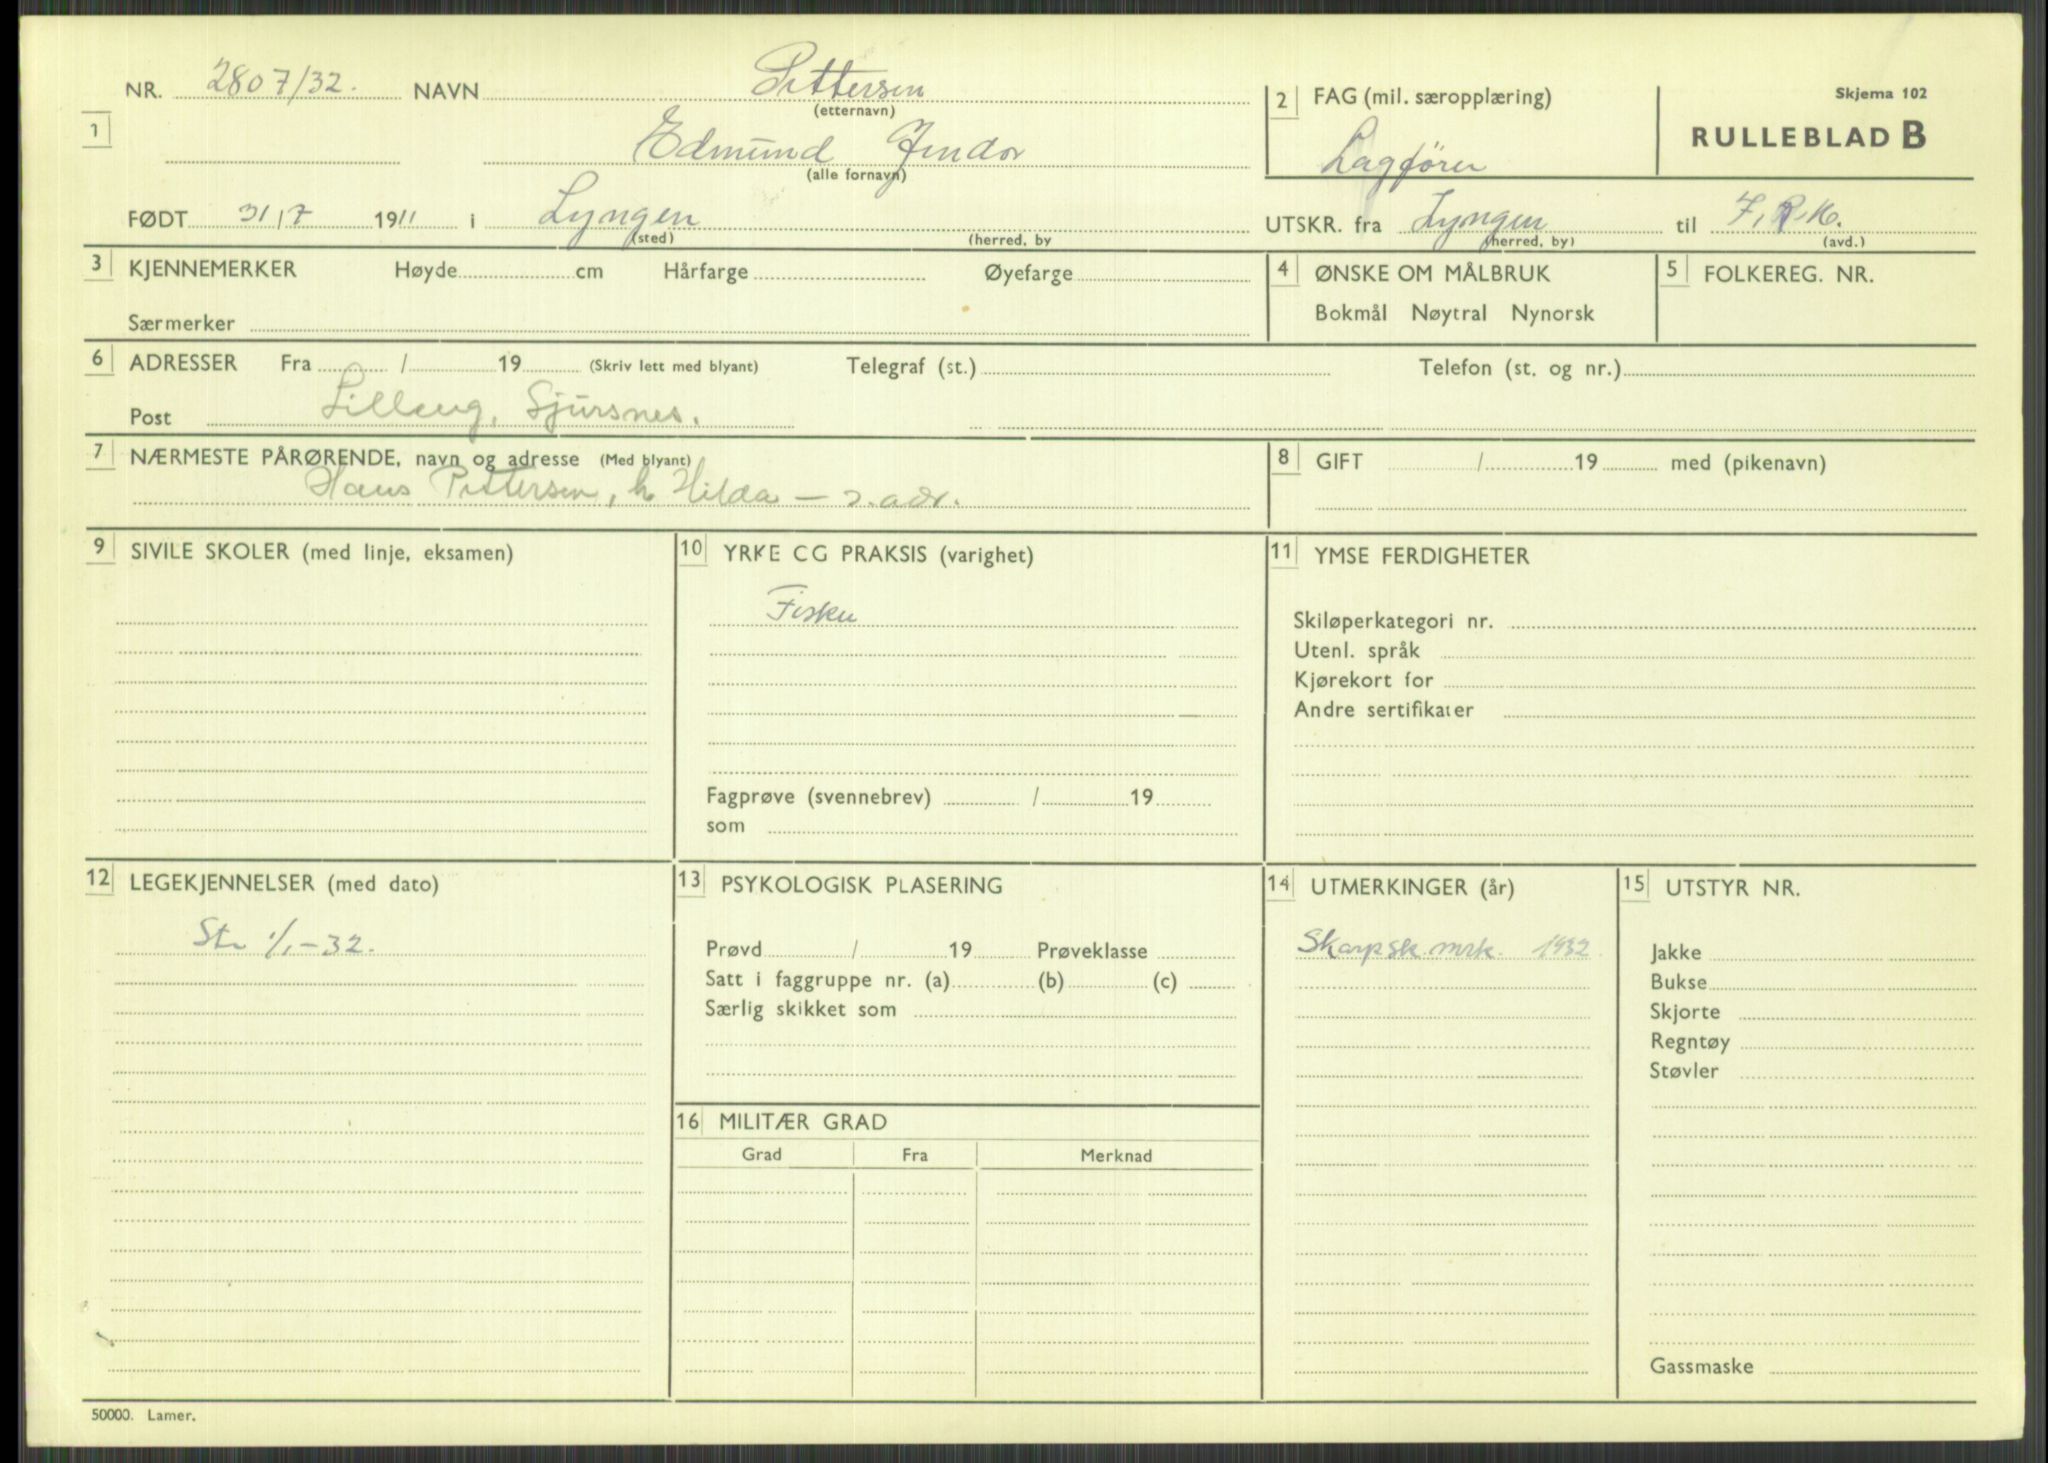 NR. 2807/32. NAVN Pettersen
(etternavn)
Skjema 102
1
2 FAG (mil. særopplæring)
RULLEBLAD B
Edmund Jindor
(alle fornavn)
Lagfører
FØDT 31/7 1911 i Lyngen
(sted) (herred, by
UTSKR. fra Lyngen til F.R.K.
(herred, by) (avd.)
3 KJENNEMERKER Høyde cm Hårfarge Øyefarge
Særmerker
4 ØNSKE OM MÅLBRUK
Bokmål Nøytral Nynorsk
5 FOLKEREG. NR.
6 ADRESSER Fra / 19 (Skriv lett med blyant) Telegraf (st.) Telefon (st. og nr.)
Post Lilleng, Sjursnes.
7 NÆRMESTE PÅRØRENDE, navn og adresse (Med blyant)
Hans Pettersen, h Hilda – s. adr.
8 GIFT / 19 med (pikenavn)
9 SIVILE SKOLER (med linje, eksamen)
10 YRKE CG PRAKSIS (varighet)
Fisker
Fagprøve (svennebrev) / 19
som
11 YMSE FERDIGHETER
Skiløperkategori nr.
Utenl. språk
Kjørekort for
Andre sertifikater
12 LEGEKJENNELSER (med dato)
Str 1/1-32.
13 PSYKOLOGISK PLASERING
Prøvd / 19 Prøveklasse
Satt i faggruppe nr. (a) (b) (c)
Særlig skikket som
14 UTMERKINGER (år)
Skarpsk.mrk. 1932
15 UTSTYR NR.
Jakke
Bukse
Skjorte
Regntøy
Støvler
Gassmaske
16 MILITÆR GRAD
Grad Fra Merknad
50000. Lamer.